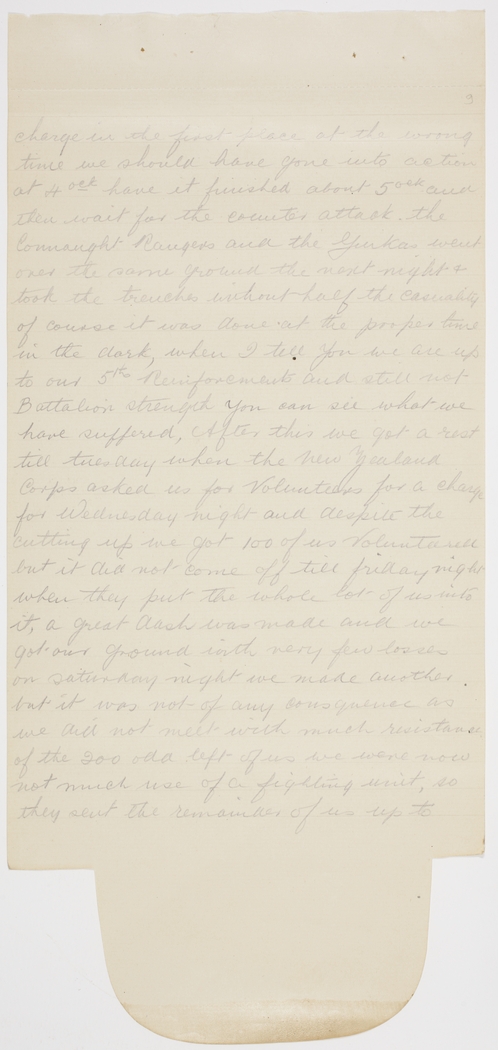 9
charge in the first place at the wrong
time we should have gone into action
at 4 ock have it finished about 5 ock and
then wait for the counter attack. the
Connaught Rangers and the Gurkas went
over the same ground the next night &
took the trenches without half the casuality
of course it was done at the proper time
in the dark, when I tell you we are up
to our 5th Reinforcements and still not
Battalion strength you can see what we
have suffered, After this we got a rest
till tuesday when the New Zealand
Corps asked us for Volunteers for a charge
for Wednesday night and despite the
cutting up we got 100 of us Volunteered
but it did not come off till friday night
when they put the whole lot of us into
it, a great dash was made and we
got our ground with very few losses
on saturday night we made another
but it was not of any consquence as
we did not meet with much resistance
of the 200 odd left of us we were now
not much use of a fighting unit, so
they sent the remainder of us up to